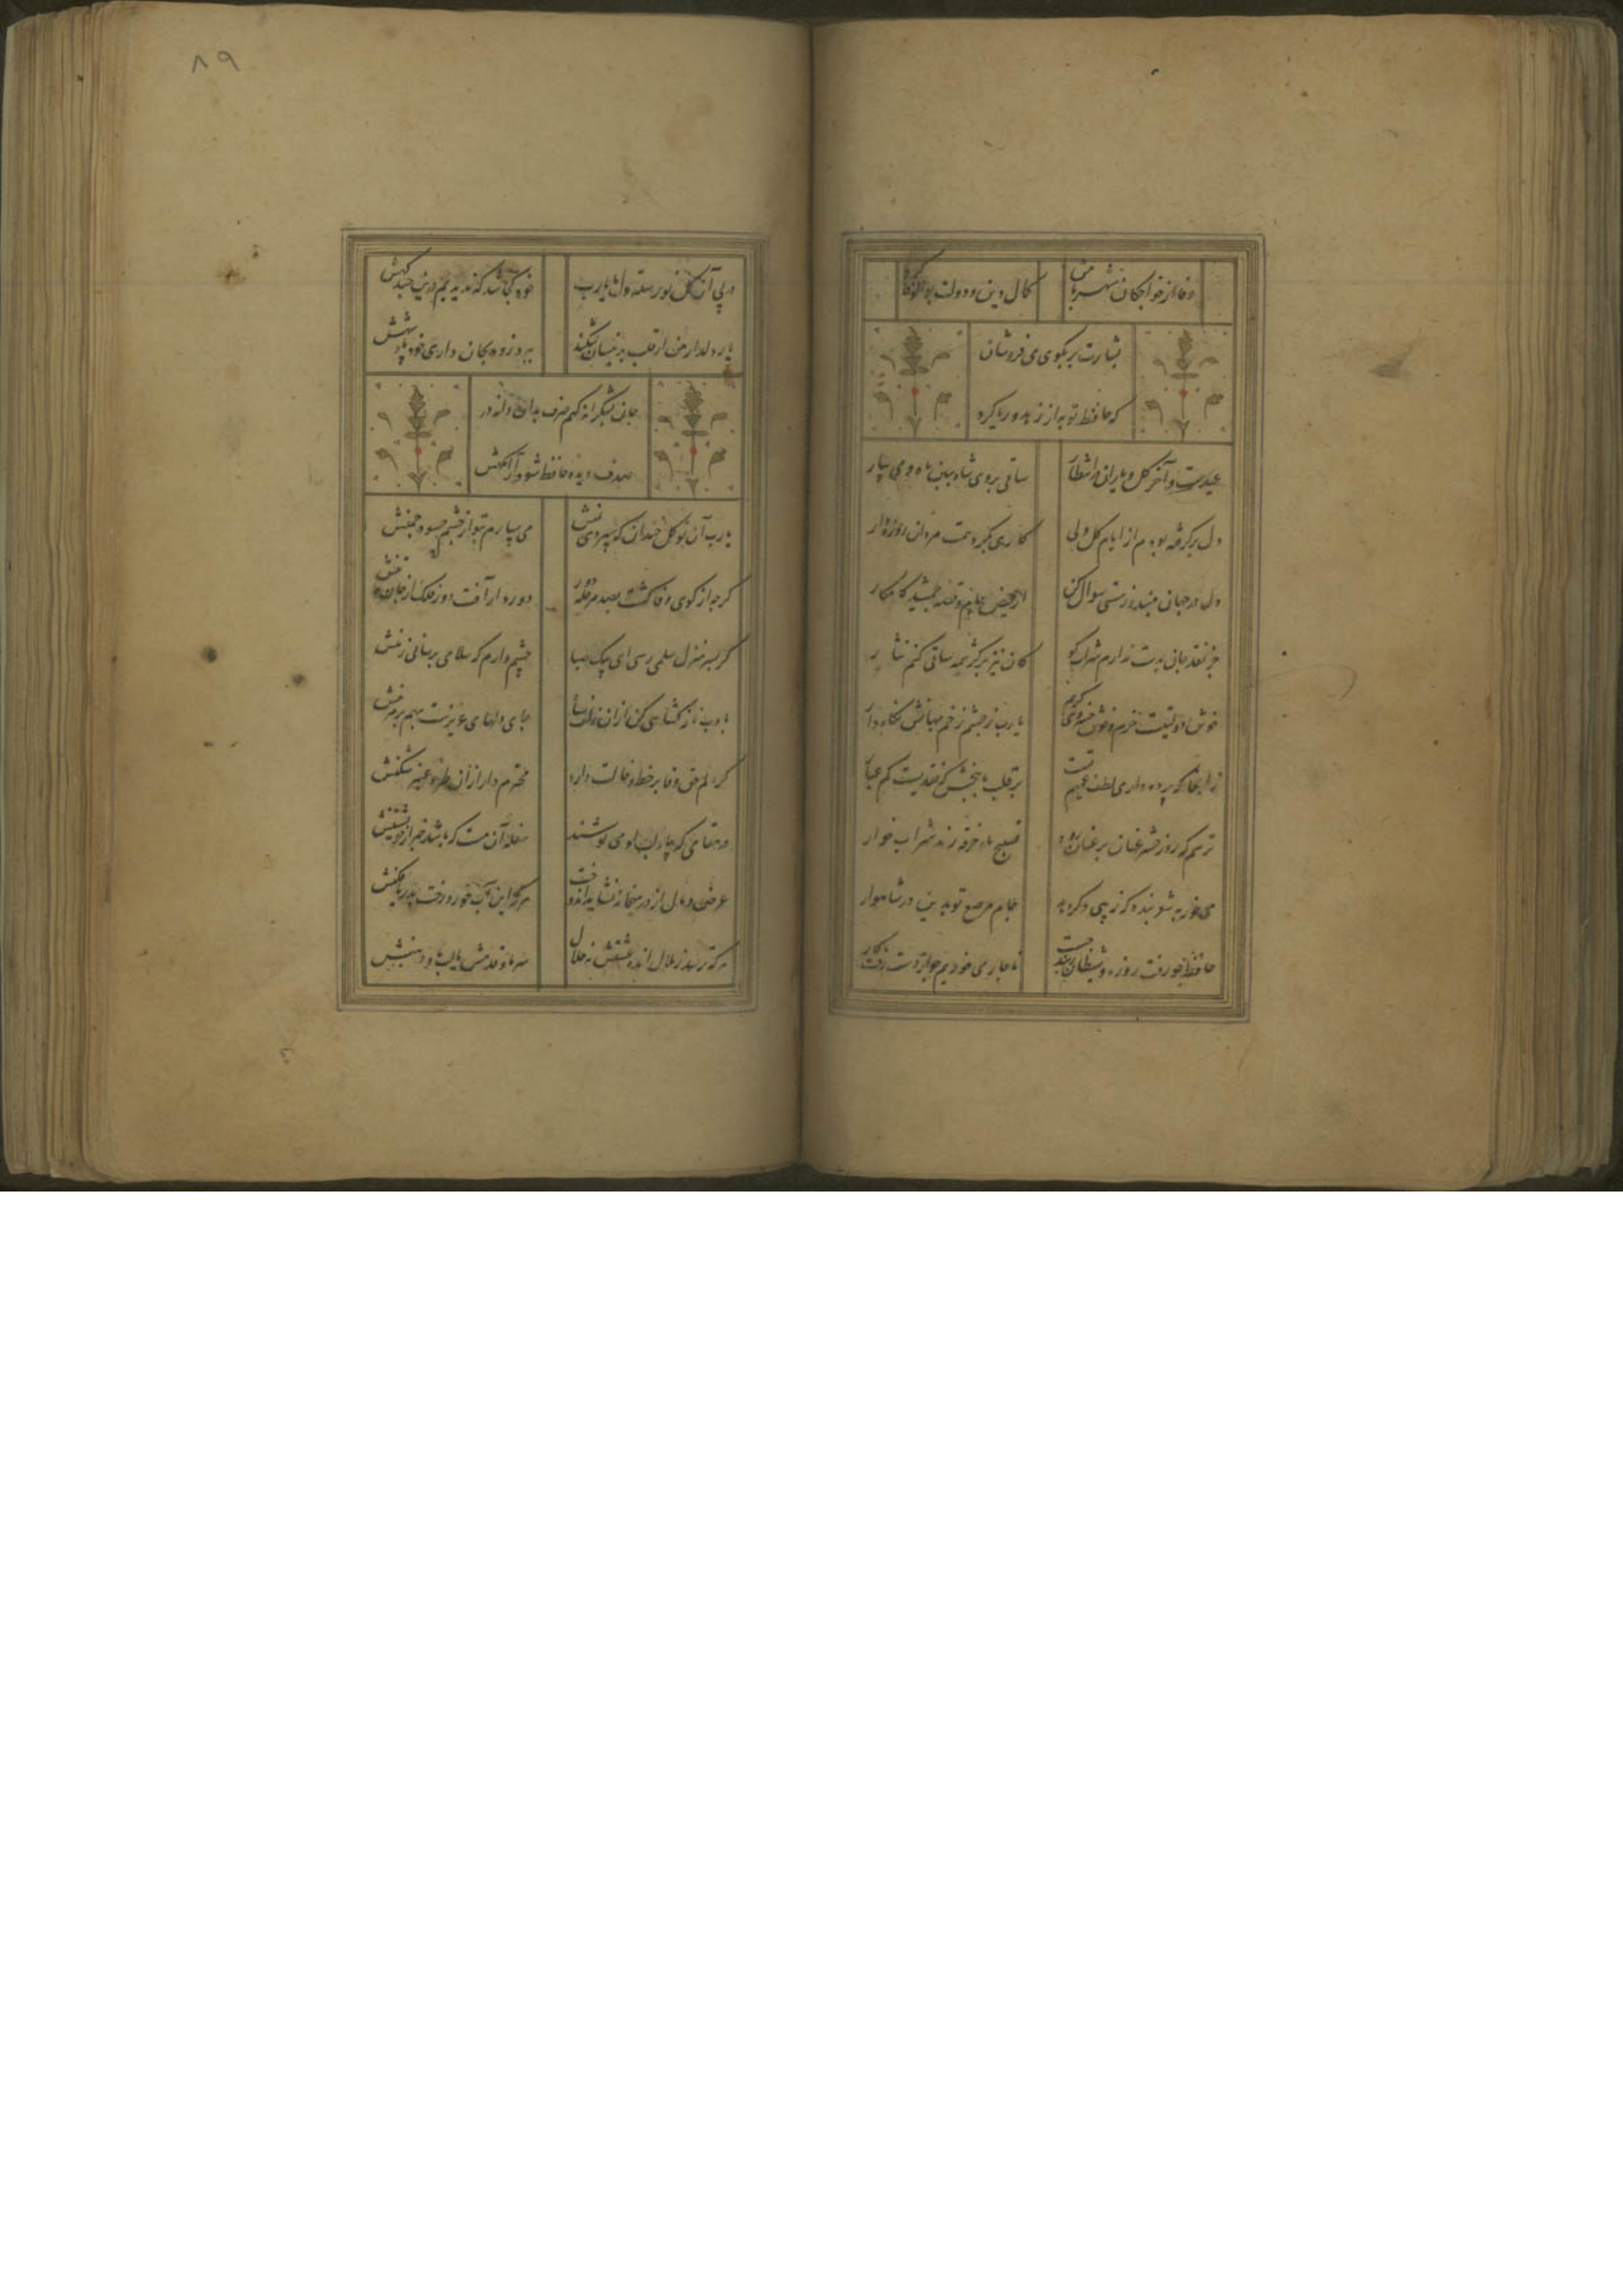 وفا از خواجگان شهر با من
کمال دین و دولت بوالوفا کرد
بشارت بر بکوی می فروشان
که حافظ توبه از زهد و ریا کرد
عیدست و آخر کل و یاران در انتظار
ساقی بروی شاه ببین ماه و می بیار
دل برکرفته بودم از ایام کل ولی
کاری بکرد همت مردان روزه دار
دل در جهان مبند و ز مستی سوال کن
از فیض جام و قصه جمشید کامکار
جز نقد جان بدست ندارم شراب کو
کان نیز بر کرشمه ساقی کنم نثار
خوش دولتیست خرم و خوش خسروی کریم
یا رب ز چشم زخم جهانش نکاه دار
زانجا که پرده داری لطف عمیم تست
بر قلب ما ببخش که نقدیست کم عیار
ترسم که روز حشر عنان بر عنان رود
تسبیح ما و خرقه رند شراب خوار
می خور به شعر بنده که زیبی دکر دهد
جام مرصع تو بدین در شاهوار
حافظ چو رفت روزه و
ناچار می خوریم چو از دست رفت کار
۸۹
در پی آن کل نورسته دل ما یا رب
خود کجا شد که ندیدیم درین چند کهش
یار دلدار من ار قلب بدینسان شکند
ببرد زود بجان داری خود پادشهش
جان بشکرانه کنم صرف کر آن دانه در
صدف دیده حافظ شود آرامکهش
یا رب آن نوکل خندان که سپردی بمنش
می سپارم بتو از چشم حسود چمنش
کرچه از کوی وفا کشت بصد مرحله دور
دور باد آفت دور فلک از جان و تنش
کر بسر منزل سلمی رسی ای پیک صبا
چشم دارم که سلامی برسانی ز منش
بادب نافه کشایی کن از آن زلف سیاه
جای دلهای عزیزست بهم برمزنش
کو دلم حق وفا بر خط و خالت دارد
محترم دار در آن طره عنبر شکنش
در مقامی که بیاد لب او می نوشند
سفله آن مست که باشد خبر از خویشتنش
عرض و مال از در میخانه نشاید اندوخت
هر که این آب خورد رخت بدریا فکنش
هر که ترسد ز ملال انده عشقش نه حلال
سر ما و قدمش یا لب ما و دهنش